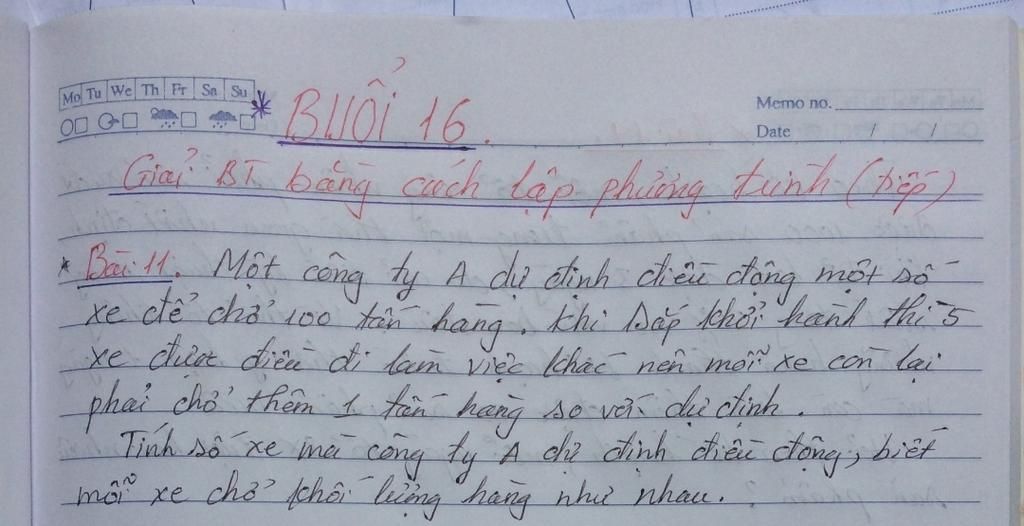 Mo Tu We Th Fr Sa Su
Memo no.
Date / /
BUỔI 16.
Giải BT bằng cách lập phương trình (tiếp)
* Bài 11. Một công ty A dự định điều động một số
xe để chở 100 tấn hàng. Khi sắp khởi hành thì 5
xe được điều đi làm việc khác nên mỗi xe còn lại
phải chở thêm 1 tấn hàng so với dự định.
Tính số xe mà công ty A dự định điều động, biết
mỗi xe chở khối lượng hàng như nhau.